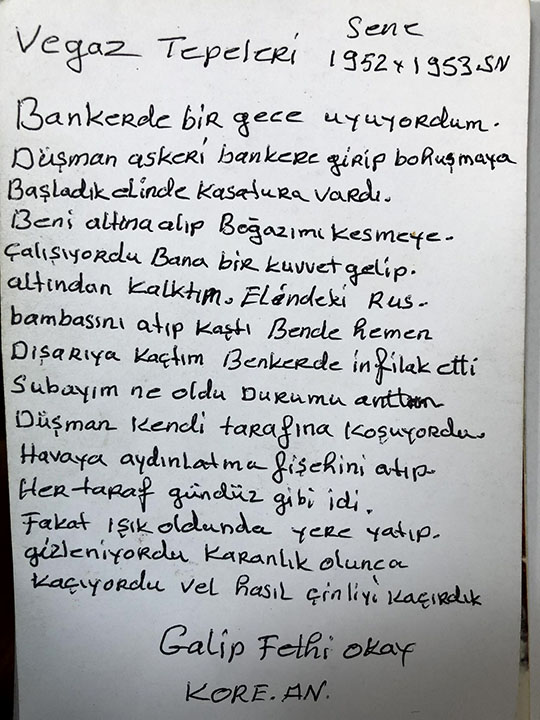 Vegaz Tepeleri Sene
1952 x 1953.SN
Bankerde bir gece uyuyordum.
Düşman askeri bankere girip bohuşmaya
Başladık elinde Kasatura vardı.
Beni altına alıp Boğazımı kesmeye.
Çalışıyordu Bana bir kuvvet gelip.
altından kalktım. Elindeki Rus-
bambasını atıp kaştı Bende hemen
Dışarıya kaçtım Benkerde infilak etti
Subayım ne oldu Durumu anttım
Düşman kendi tarafına koşuyordu.
Havaya aydınlatma fişehini atıp.
Her taraf gündüz gibi idi.
Fakat ışık oldunda yere yatıp.
gizleniyordu karanlık olunca
kaçıyordu vel hasıl çinliyi kaçırdık
Galip Fethi Okay
KORE.AN.